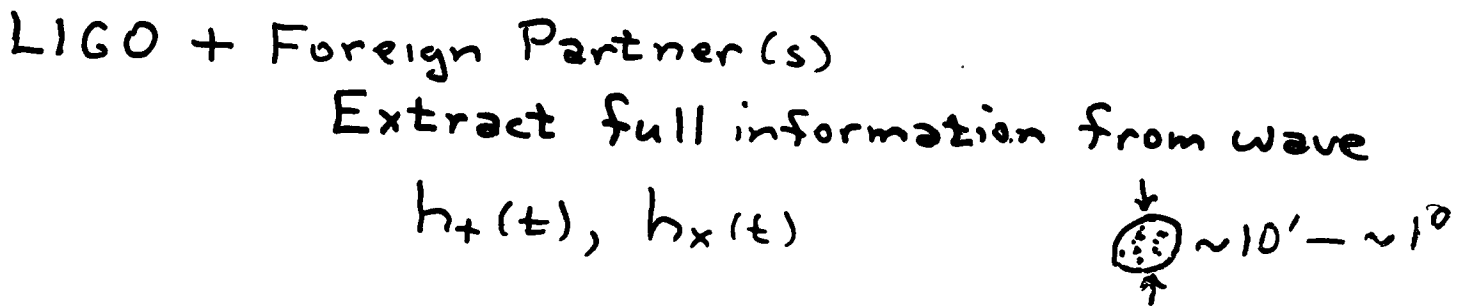 LIGO + Foreign Partner(s)
Extract full information from wave
h₊(t), hₓ(t) ~10′ — ~1°